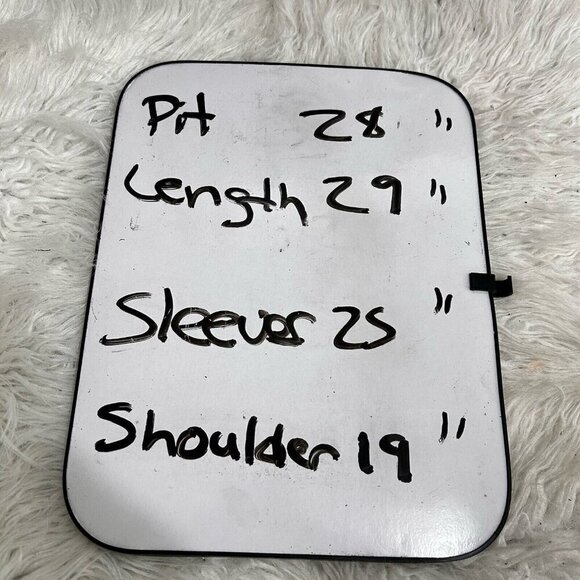 Pit 28 "
Length 29 "
Sleeves 25 "
Shoulder 19 "